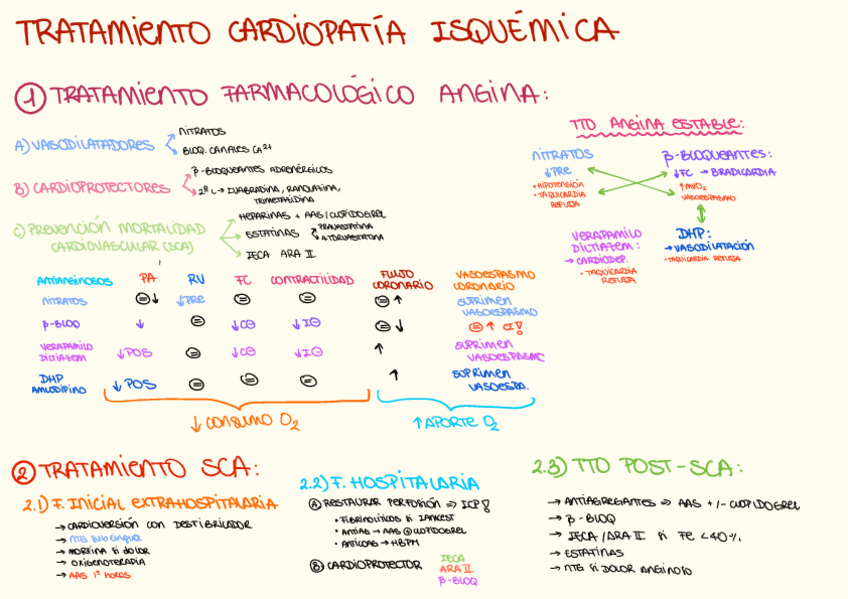 TRATAMIENTO CARDIOPATÍA ISQUÉMICA
① TRATAMIENTO FARMACOLÓGICO ANGINA:
A) VASODILATADORES
NITRATOS
BLOQ. CANALES Ca2+
B) CARDIOPROTECTORES
β-BLOQUEANTES ADRENÉRGICOS
2ª L → IVABRADINA, RANOLATINA,
TRIMETAZIDINA
C) PREVENCIÓN MORTALIDAD
CARDIOVASCULAR (SCA)
HEPARINAS + AAS / CLOPIDOGREL
ESTATINAS
PRAVASTATINA
ATORVASTATINA
IECA ARA II
TTO ANGINA ESTABLE:
NITRATOS
↓PRE
• HIPOTENSIÓN
• TAQUICARDIA
REFLEJA
β-BLOQUEANTES:
↓FC → BRADICARDIA
↑MVO2
VASOESPASMO
VERAPAMILO
DILTIAZEM:
→ CARDIODEP.
• TAQUICARDIA
REFLEJA
DHP:
→ VASODILATACIÓN
• TAQUICARDIA REFLEJA
ANTIANGINOSOS PA RV FC CONTRACTILIDAD FLUJO CORONARIO VASOESPASMO CORONARIO
NITRATOS =↓ ↓PRE = = =↑ SUPRIMEN VASOESPASMO
β-BLOQ ↓ = ↓C⊖ ↓I⊖ =↓ =↑ CI!
VERAPAMILO DILTIAZEM ↓POS = ↓C⊖ ↓I⊖ ↑ SUPRIMEN VASOESPASMO
DHP AMLODIPINO ↓POS = = = ↑ SUPRIMEN VASOESPA.
↓ CONSUMO O2
↑ APORTE O2
② TRATAMIENTO SCA:
2.1) F. INICIAL EXTRAHOSPITALARIA
→ CARDIOVERSIÓN CON DESFIBRILADOR
→ NTG SUBLINGUAL
→ MORFINA SI DOLOR
→ OXIGENOTERAPIA
→ AAS 1ª HORAS
2.2) F. HOSPITALARIA
Ⓐ RESTAURAR PERFUSIÓN ⇒ ICP!
• FIBRINOLÍTICOS SI IAMCEST
• ANTIAG → AAS ⊕ CLOPIDOGREL
• ANTICOAG → HBPM
Ⓑ CARDIOPROTECTOR
IECA
ARA II
β-BLOQ
2.3) TTO POST-SCA:
→ ANTIAGREGANTES ⇒ AAS +/- CLOPIDOGREL
→ β-BLOQ
→ IECA / ARA II SI FE <40%
→ ESTATINAS
→ NTG SI DOLOR ANGINOSO